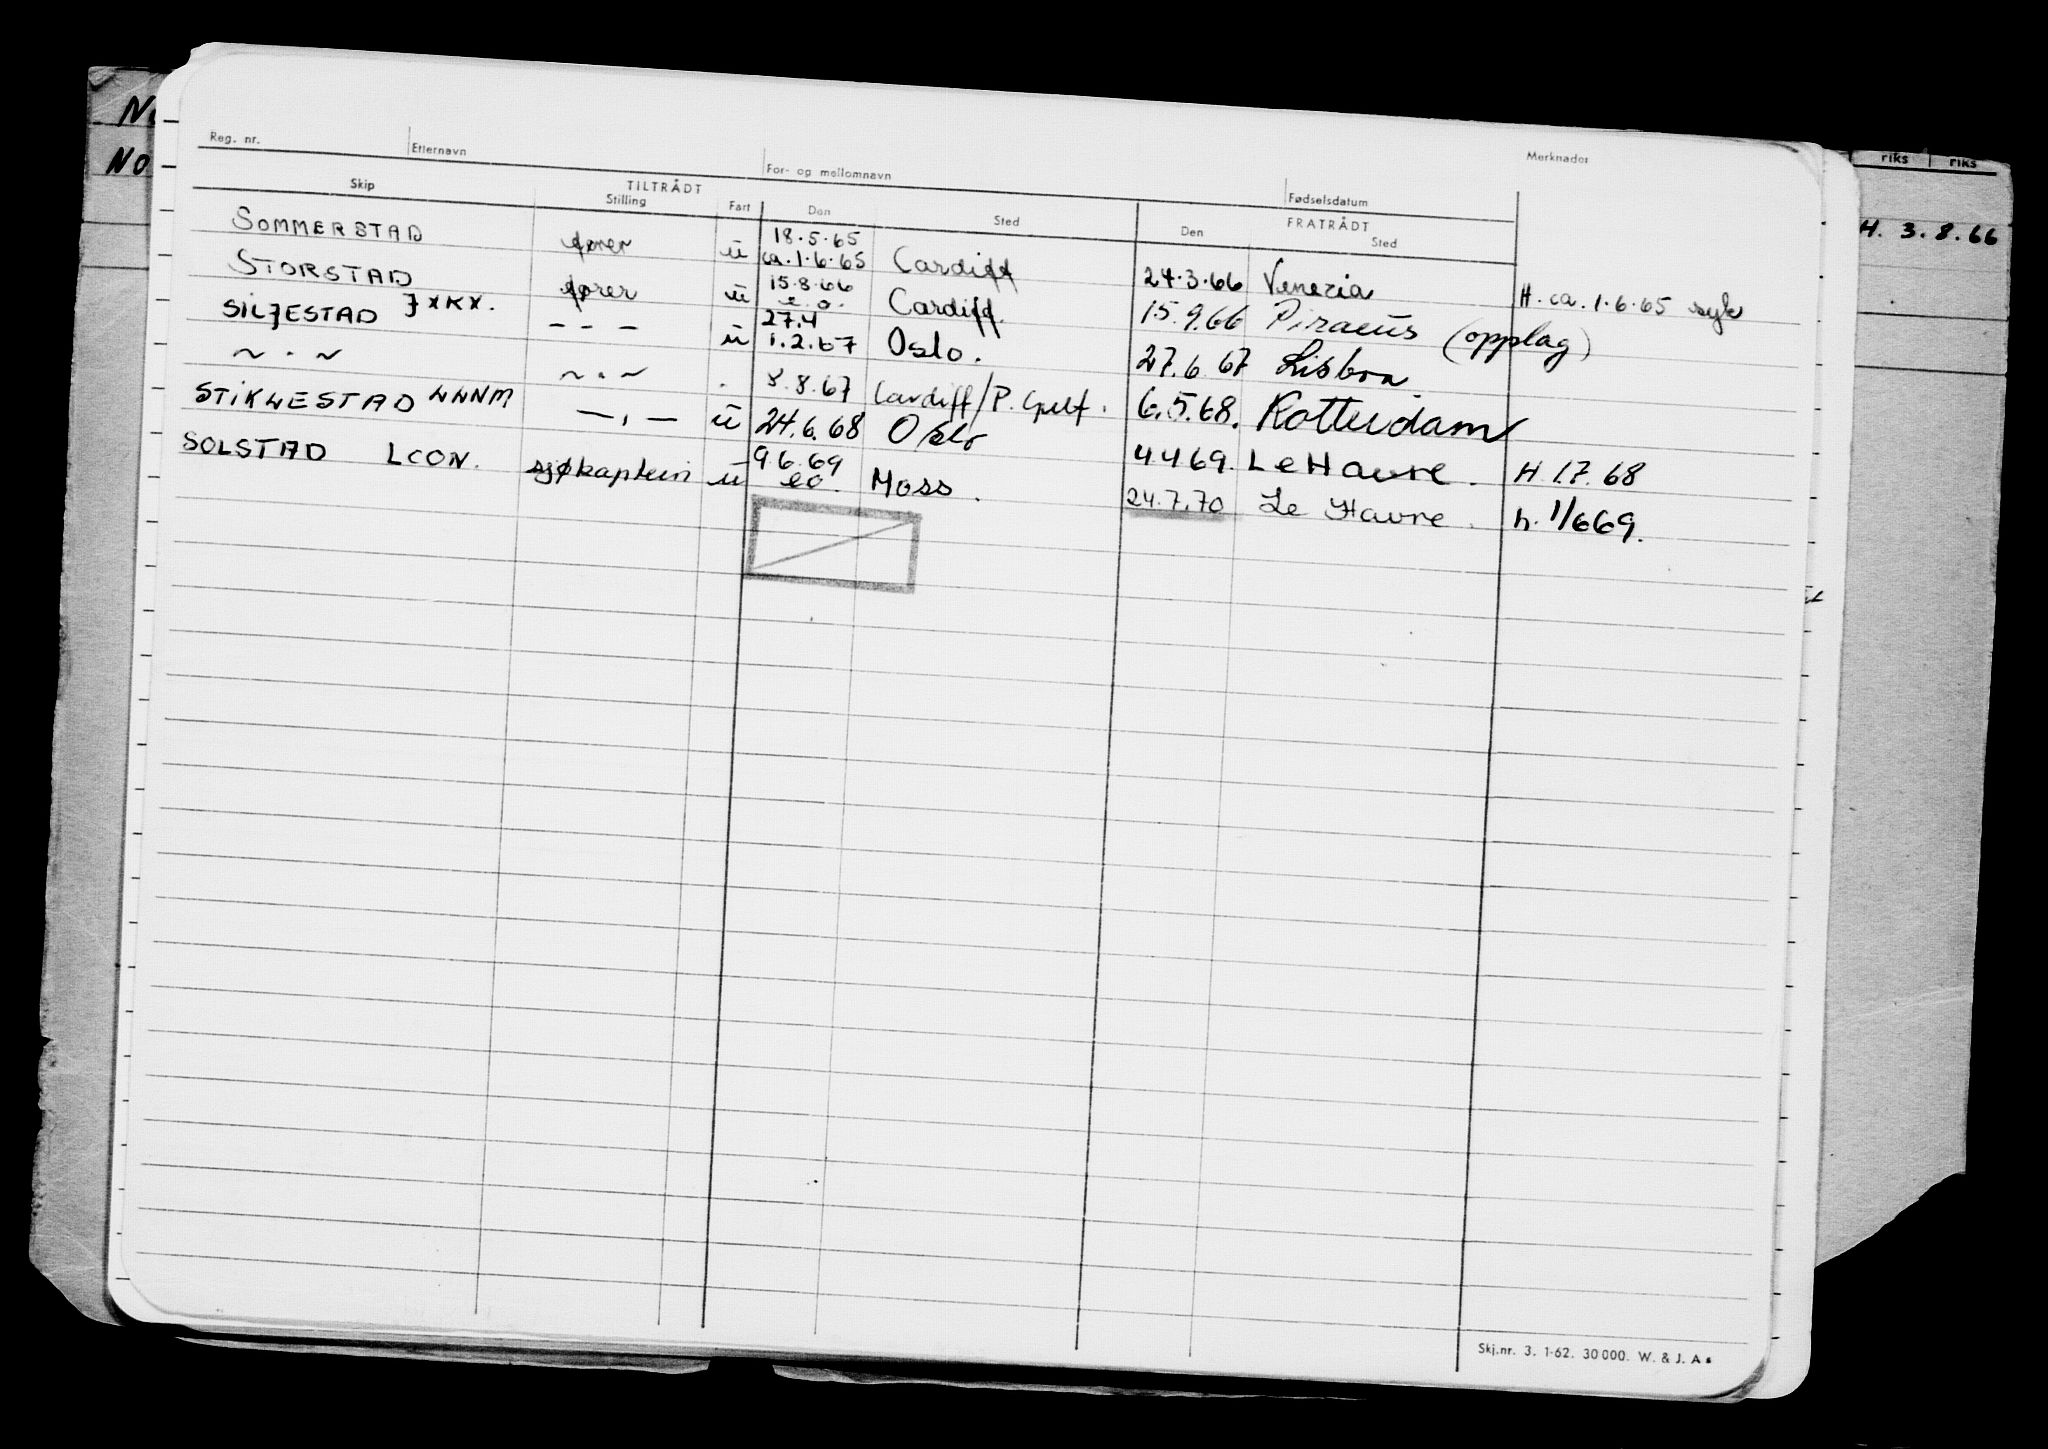 Reg. nr. Etternavn For- og mellomnavn Fødselsdatum Merknader
Skip TILTRÅDT FRATRÅDT
Stilling Fart Den Sted Den Sted
SOMMERSTAD fører u 18.5.65 ca. 1.6.65 Cardiff 24.3.66 Venezia H. ca. 1.6.65 syk
STORSTAD fører u 15.8.66 e.o. Cardiff. 15.9.66 Piraeus (opplag)
SILJESTAD JXKX. - - - u 27.4 1.2.67 Oslo. 27.6.67 Lisboa
~ . ~ ~ . ~ . 8.8.67 Cardiff/P. Gulf. 6.5.68. Rotterdam
STIKLESTAD LLNM —,— u 24.6.68 Oslo 4469. Le Havre. H 1.7.68
SOLSTAD LCON. sjøkaptein u 9.6.69 eo. Moss. 24.7.70 Le Havre. h. 1/669.
NO
riks riks
H. 3.8.66
Skj.nr. 3. 1-62. 30 000. W. & J. A s